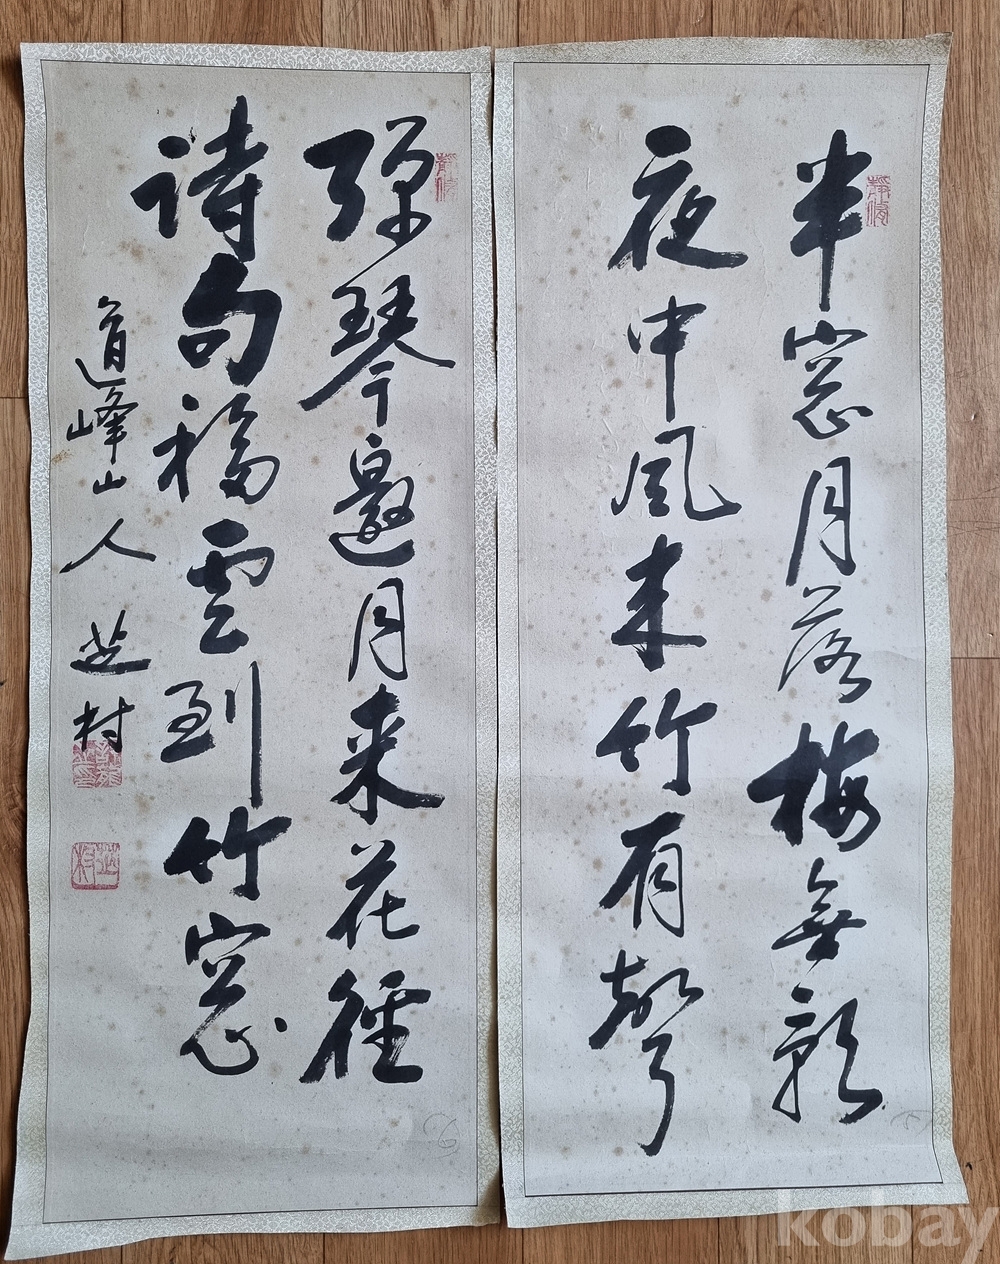 半窓月落梅無影
夜中風来竹有聲
弾琴邀月来花徑
詩句移雲到竹窓
道峰山人 芝村
kobay